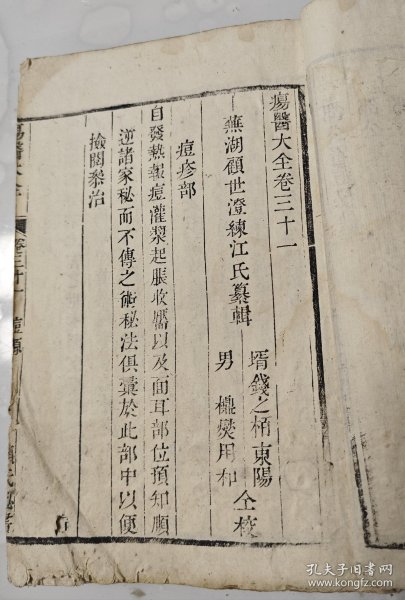 瘍醫大全卷三十一
蕪湖顧世澄練江氏纂輯
壻錢之栢東陽
男 櫆爕用和
仝校
痘疹部
自發熱報痘灌漿起脹收靨以及面耳部位預知順
逆諸家秘而不傳之術秘法俱彙於此部中以便
撿閱叅治
瘍醫大全
卷三十一 痘源
孔夫子旧书网
www.kongfz.com